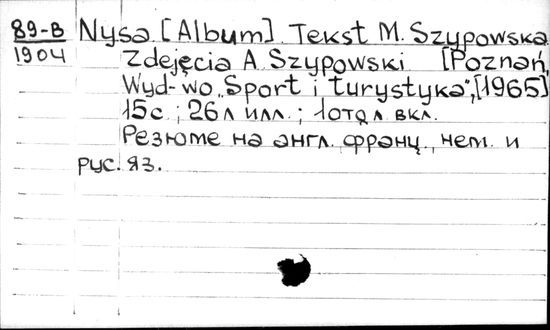 89-В Nysa [Album]. Tekst M. Szypowska
1904 Zdejęcia A Szypowski [Poznań,
Wyd-wo „Sport i turystyka“,[1965]
15с.; 26л илл.; 1отд л вкл.
Резюме на англ. франц., нем. и
рус. яз.